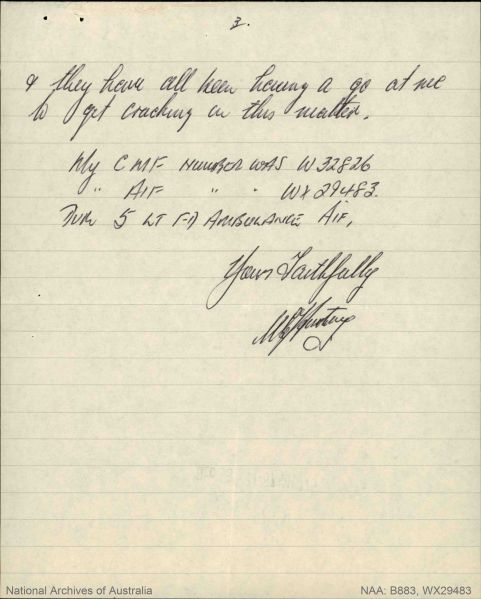 3.
& they have all been having a go at me
to get cracking on this matter.
My CMF NUMBER WAS W32826
" AIF " " WX29483.
5 LT FD AMBULANCE AIF.
Yours Faithfully
National Archives of Australia
NAA: B883, WX29483